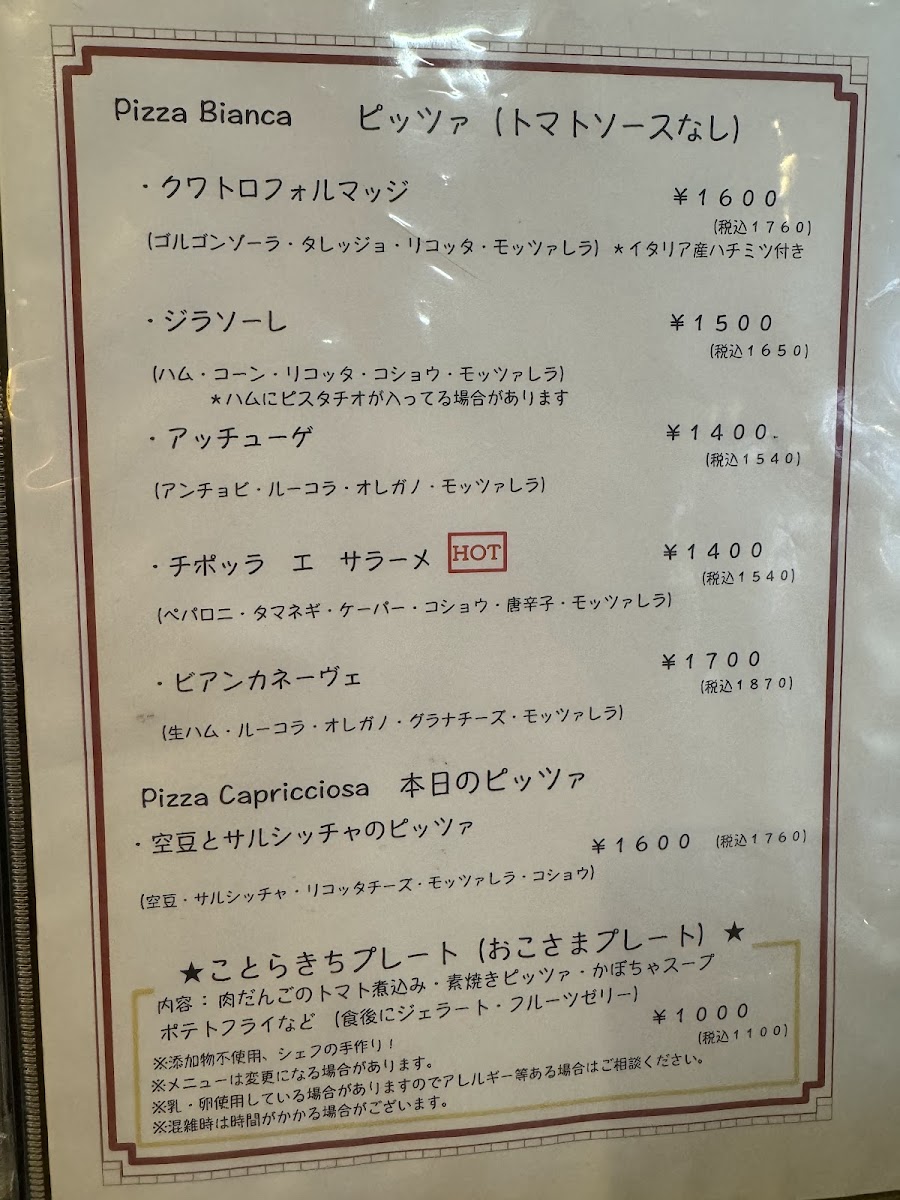 Pizza Bianca ピッツァ (トマトソースなし)
・クワトロフォルマッジ ￥1600
(税込1760)
(ゴルゴンゾーラ・タレッジョ・リコッタ・モッツァレラ) *イタリア産ハチミツ付き
・ジラソーレ ￥1500
(税込1650)
(ハム・コーン・リコッタ・コショウ・モッツァレラ)
*ハムにピスタチオが入ってる場合があります
・アッチューゲ ￥1400.
(税込1540)
(アンチョビ・ルーコラ・オレガノ・モッツァレラ)
・チポッラ エ サラーメ HOT ￥1400
(税込1540)
(ペパロニ・タマネギ・ケーパー・コショウ・唐辛子・モッツァレラ)
・ビアンカネーヴェ ￥1700
(税込1870)
(生ハム・ルーコラ・オレガノ・グラナチーズ・モッツァレラ)
Pizza Capricciosa 本日のピッツァ
・空豆とサルシッチャのピッツァ ￥1600 (税込1760)
(空豆・サルシッチャ・リコッタチーズ・モッツァレラ・コショウ)
★ことらきちプレート (おこさまプレート) ★
内容：肉だんごのトマト煮込み・素焼きピッツァ・かぼちゃスープ
ポテトフライなど (食後にジェラート・フルーツゼリー) ￥1000
(税込1100)
※添加物不使用、シェフの手作り！
※メニューは変更になる場合があります。
※乳・卵使用している場合がありますのでアレルギー等ある場合はご相談ください。
※混雑時は時間がかかる場合がございます。